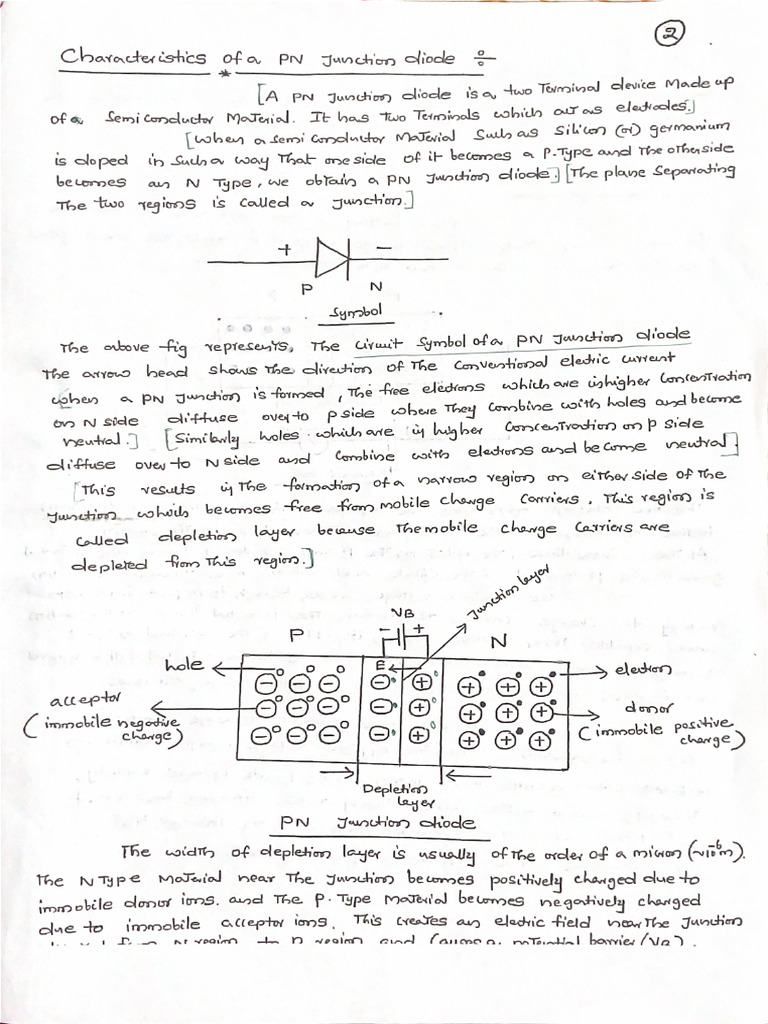 2
Characteristics of a PN Junction diode ÷
*
[A PN Junction diode is a two Terminal device Made up
of a Semi Conductor Material. It has two Terminals which act as electrodes.]
[when a semi Conductor Material Such as Silicon (or) germanium
is doped in such a way That one side of it becomes a P-Type and The other side
becomes an N Type, we obtain a PN Junction diode.] [The plane Separating
The two regions is Called a Junction.]
+ −
P N
Symbol
The above fig represents, The Circuit Symbol of a PN Junction diode
The arrow head shows The direction of The Conventional electric current
when a PN Junction is formed, The free electrons which are in higher Concentration
on N side diffuse over to p side where They Combine with holes and become
neutral.] [Similarly holes which are in higher Concentration on p side
diffuse over to N side and Combine with electrons and become neutral]
[This results in The formation of a narrow region on either side of The
Junction which becomes free from mobile charge Carriers, This region is
Called depletion layer because The mobile charge Carriers are
depleted from This region.]
VB
− +
Junction layer
P N
hole E electron
acceptor
(immobile negative
charge)
donor
(immobile positive
charge)
Depletion
layer
PN Junction diode
The width of depletion layer is usually of the order of a micron (~10⁻⁶m).
The N Type Material near The Junction becomes positively charged due to
immobile donor ions. and The P-Type Material becomes negatively charged
due to immobile acceptor ions. This creates an electric field near The Junction
region and potential barrier (VB).